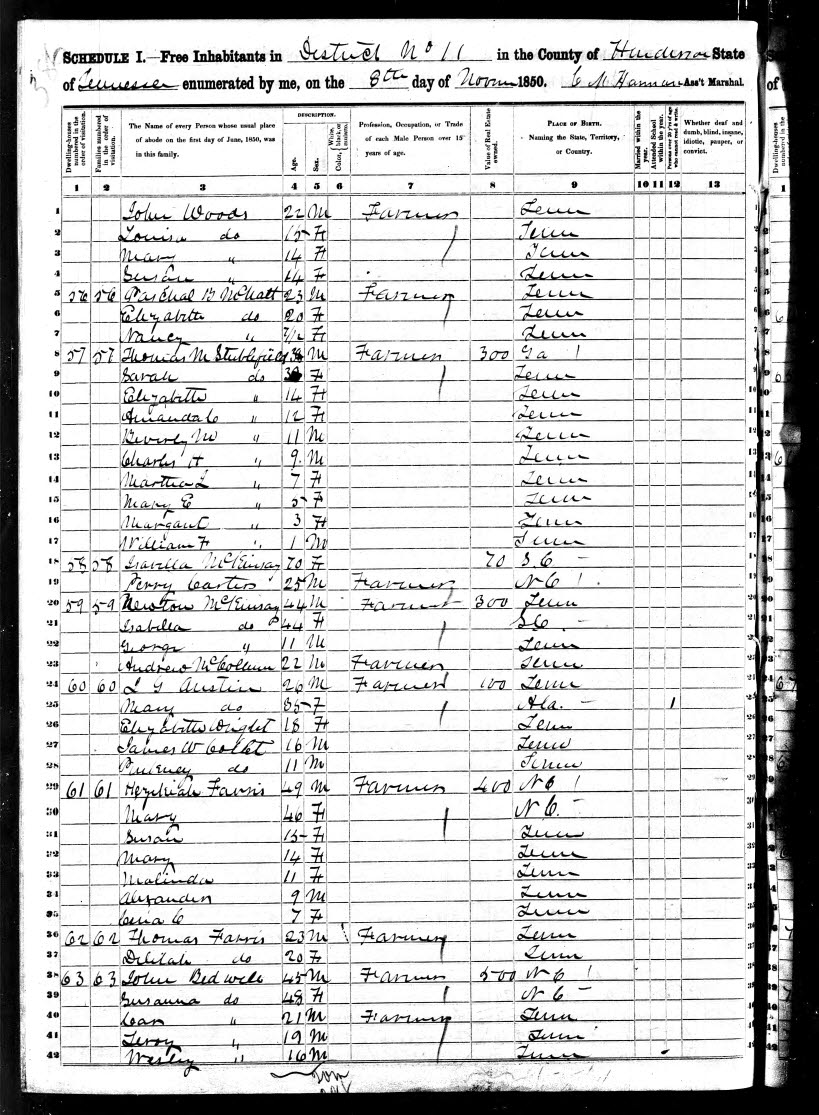 SCHEDULE I.—Free Inhabitants in District No 11 in the County of Henderson State
of Tennessee enumerated by me, on the 8th day of Novem 1850. C M Harman Ass't Marshal.
Dwelling-houses numbered in the order of visitation.
Families numbered in the order of visitation.
The Name of every Person whose usual place of abode on the first day of June, 1850, was in this family.
DESCRIPTION.
Age.
Sex.
Color, White, black, or mulatto.
Profession, Occupation, or Trade of each Male Person over 15 years of age.
Value of Real Estate owned
PLACE OF BIRTH. Naming the State, Territory, or Country.
Married within the year.
Attended School within the year.
Persons over 20 y'rs of age who cannot read & write.
Whether deaf and dumb, blind, insane, idiotic, pauper, or convict.
1 2 3 4 5 6 7 8 9 10 11 12 13
1 John Woods 22 M Farmer Tenn
2 Louisa do 15 F Tenn
3 Mary " 14 F Tenn
4 Susan " 14 F Tenn
5 56 56 Paschal B McNatt 23 M Farmer Tenn
6 Elizabeth do 20 F Tenn
7 Nancy " 7/12 F Tenn
8 57 57 Thomas M Stublefield 38 M Farmer 300 Ga
9 Sarah do F Tenn
10 Elizabeth " 14 F Tenn
11 Amanda C " 12 F Tenn
12 Beverly M " 11 M Tenn
13 Charles H " 9 M Tenn
14 Martha L " 7 F Tenn
15 Mary E " 5 F Tenn
16 Margaret " 3 F Tenn
17 William F " 1 M Tenn
18 58 58 Isabella McKinsay 70 F 70 S.C
19 Perry Carters 25 M Farmer N C
20 59 59 Newton McKinsay 44 M Farmer 300 Tenn
21 Isabella do 44 F S.C.
22 George " 11 M Tenn
23 Andrew McCollum 22 M Farmer Tenn
24 60 60 L G Austin 26 M Farmer 100 Tenn
25 Mary do 35 F Ala. 1
26 Elizabeth Wright 18 F Tenn
27 James W 16 M Tenn
28 Pinkney do 11 M Tenn
29 61 61 Hezekiah Farris 49 M Farmer 400 N C
30 Mary 46 F N C.
31 Susan 15 F Tenn
32 Mary 14 F Tenn
33 Malinda 11 F Tenn
34 Alexander 9 M Tenn
35 C 7 F Tenn
36 62 62 Thomas Farris 23 M Farmer Tenn
37 Delilah do 20 F Tenn
38 63 63 John Bedwell 45 M Farmer 500 N C
39 Susanna do 48 F N C
40 " 21 M Farmer Tenn
41 Leroy " 19 M Tenn
42 Wesley " 16 M Tenn